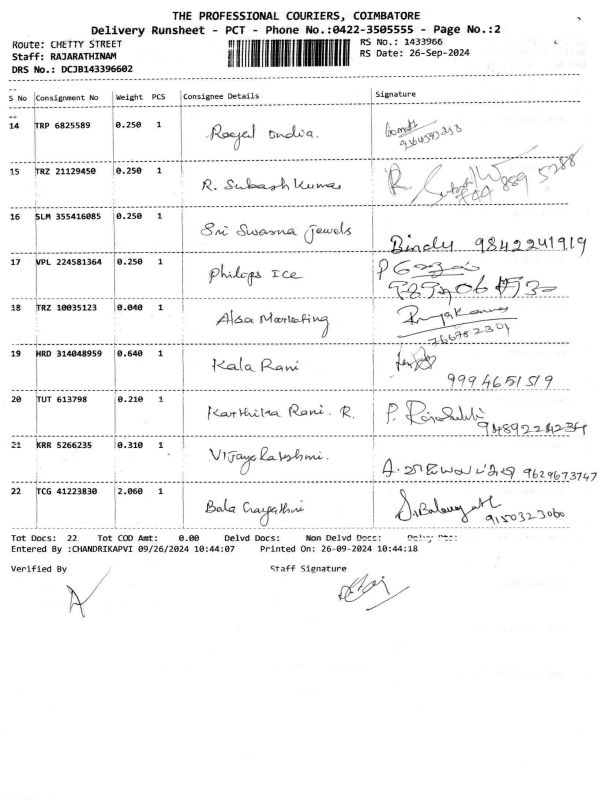 THE PROFESSIONAL COURIERS, COIMBATORE
Delivery Runsheet - PCT - Phone No.:0422-3505555 - Page No.:2
Route: CHETTY STREET RS No.: 1433966
Staff: RAJARATHINAM RS Date: 26-Sep-2024
DRS No.: DCJB143396602
S No Consignment No Weight PCS Consignee Details Signature
14 TRP 6825589 0.250 1 Royal India.
15 TRZ 21129450 0.250 1 R. Subash Kumar
16 SLM 355416085 0.250 1 Sri Swarna Jewels Bindu 9842241919
17 VPL 224581364 0.250 1 Philips ICE
18 TRZ 10035123 0.040 1 Alsa Marketing
19 HRD 314048959 0.640 1 Kala Rani
9994651519
20 TUT 613798 0.210 1 Karthika Rani. R.
9489224234
21 KRR 5266235 0.310 1 Vijayalakshmi. 9629673747
22 TCG 41223830 2.060 1 Bala Gayathri
9150323060
Tot Docs: 22 Tot COD Amt: 0.00 Delvd Docs: Non Delvd Docs:
Entered By :CHANDRIKAPVI 09/26/2024 10:44:07 Printed On: 26-09-2024 10:44:18
Verified By Staff Signature